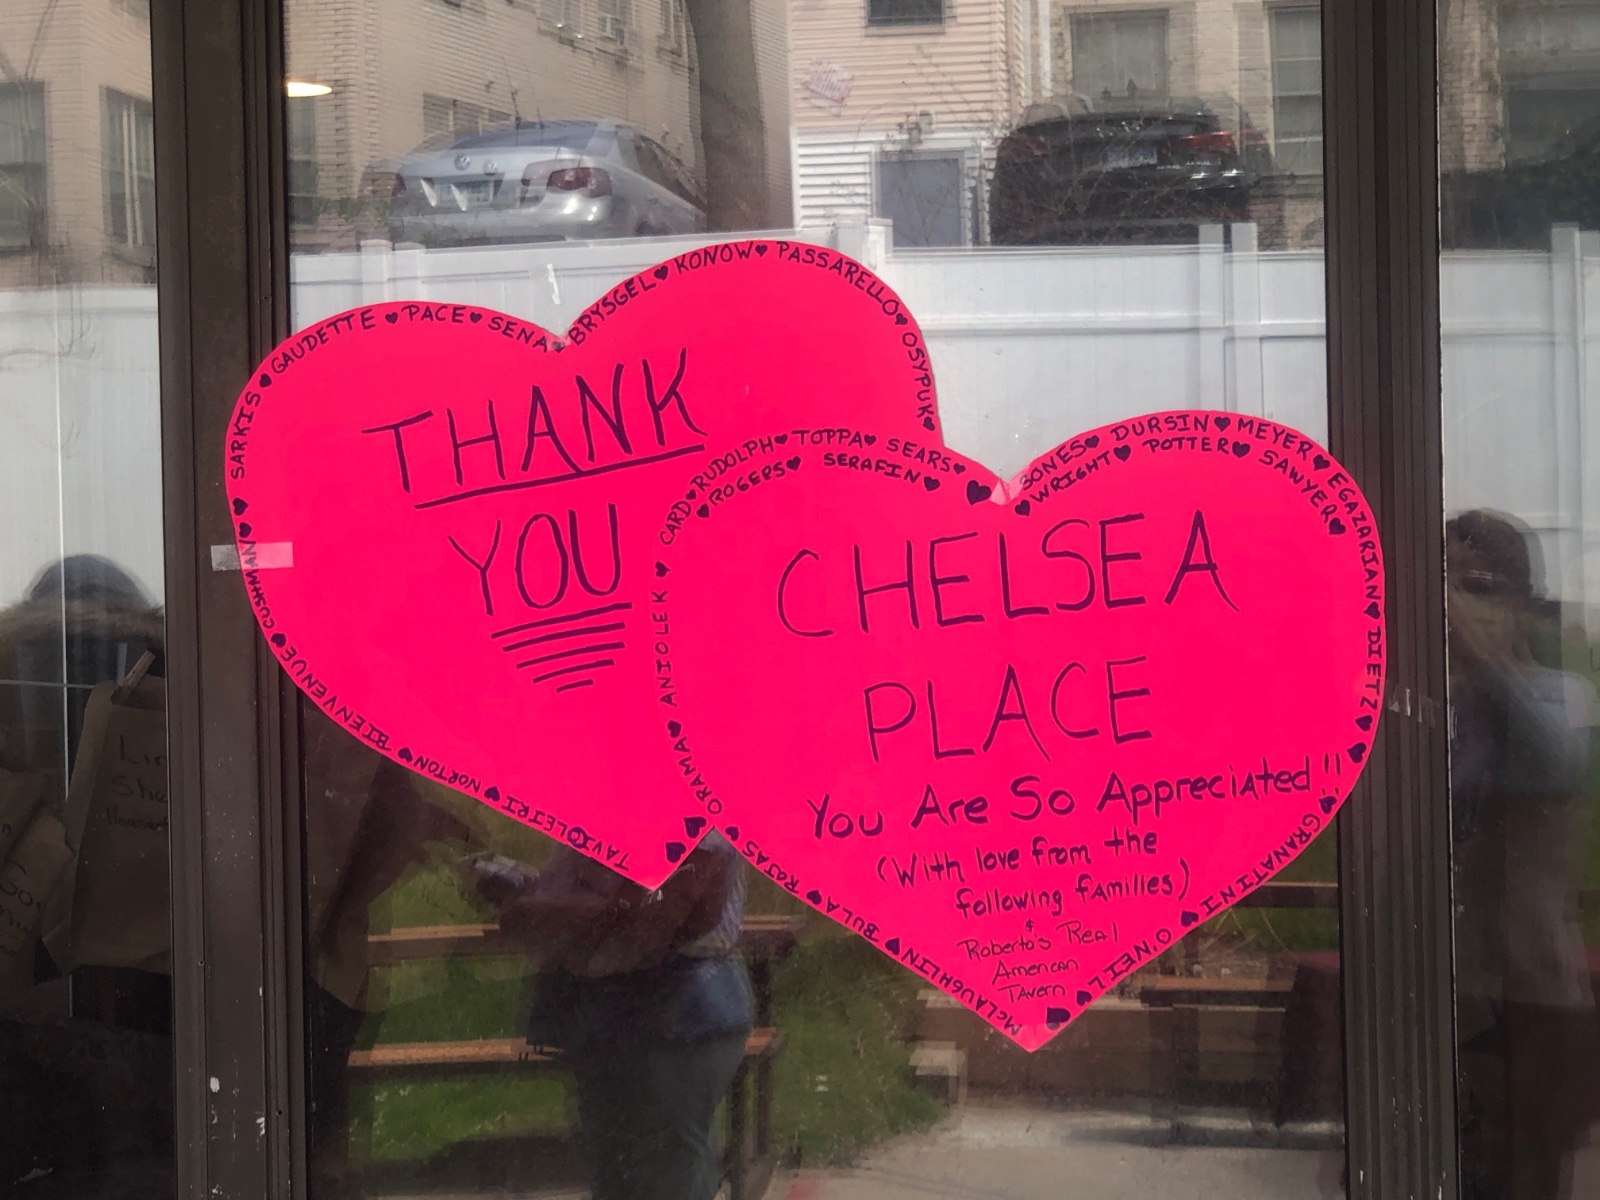 THANK
YOU
SARKIS ♥ GAUDETTE ♥ PACE ♥ SENA ♥ BRYSGEL ♥ KONOW ♥ PASSARELLO ♥ OSYPUK ♥
CUSHMAN ♥ BIENVENUE ♥ NORTON ♥ TAVOLEIRI
CHELSEA
PLACE
You Are So Appreciated!!
(With love from the
following families)
&
Roberto's Real
American
Tavern
ORAMA ♥ ANIOLEK ♥ CARD ♥ RUDOLPH ♥ TOPPA ♥ SEARS ♥
♥ ROGERS ♥ SERAFIN ♥
JONES ♥ DURSIN ♥ MEYER ♥ EGAZARIAN ♥ DIETZ ♥
♥ WRIGHT ♥ POTTER ♥ SAWYER ♥
♥ GRANATINI ♥ O'NEILL ♥
♥ ROJAS ♥ BULA ♥ McLAUGHLIN